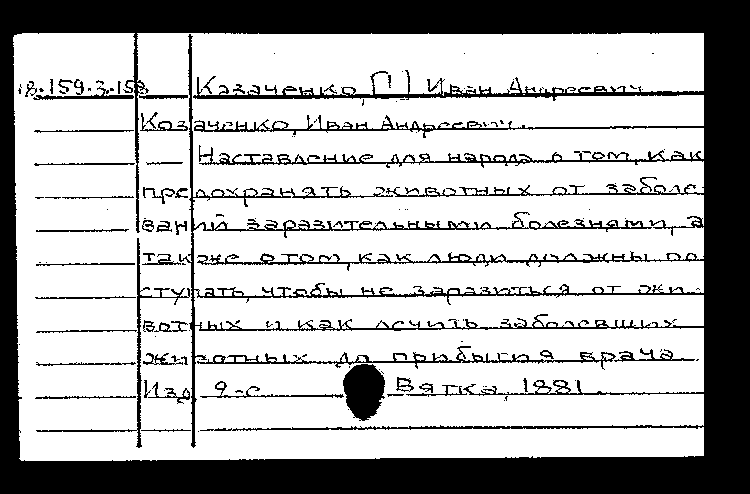 18.159.3.158 Казаченко, [ ] Иван Андреевич
Козаченко, Иван Андреевич.
— Наставление для народа о том, как
предохранять животных от заболе-
ваний заразительными болезнями, а
также о том, как люди должны по
ступать, чтобы не заразиться от жи-
вотных и как лечить заболевших
животных до прибытия врача.
Изд. 9-е Вятка, 1881.